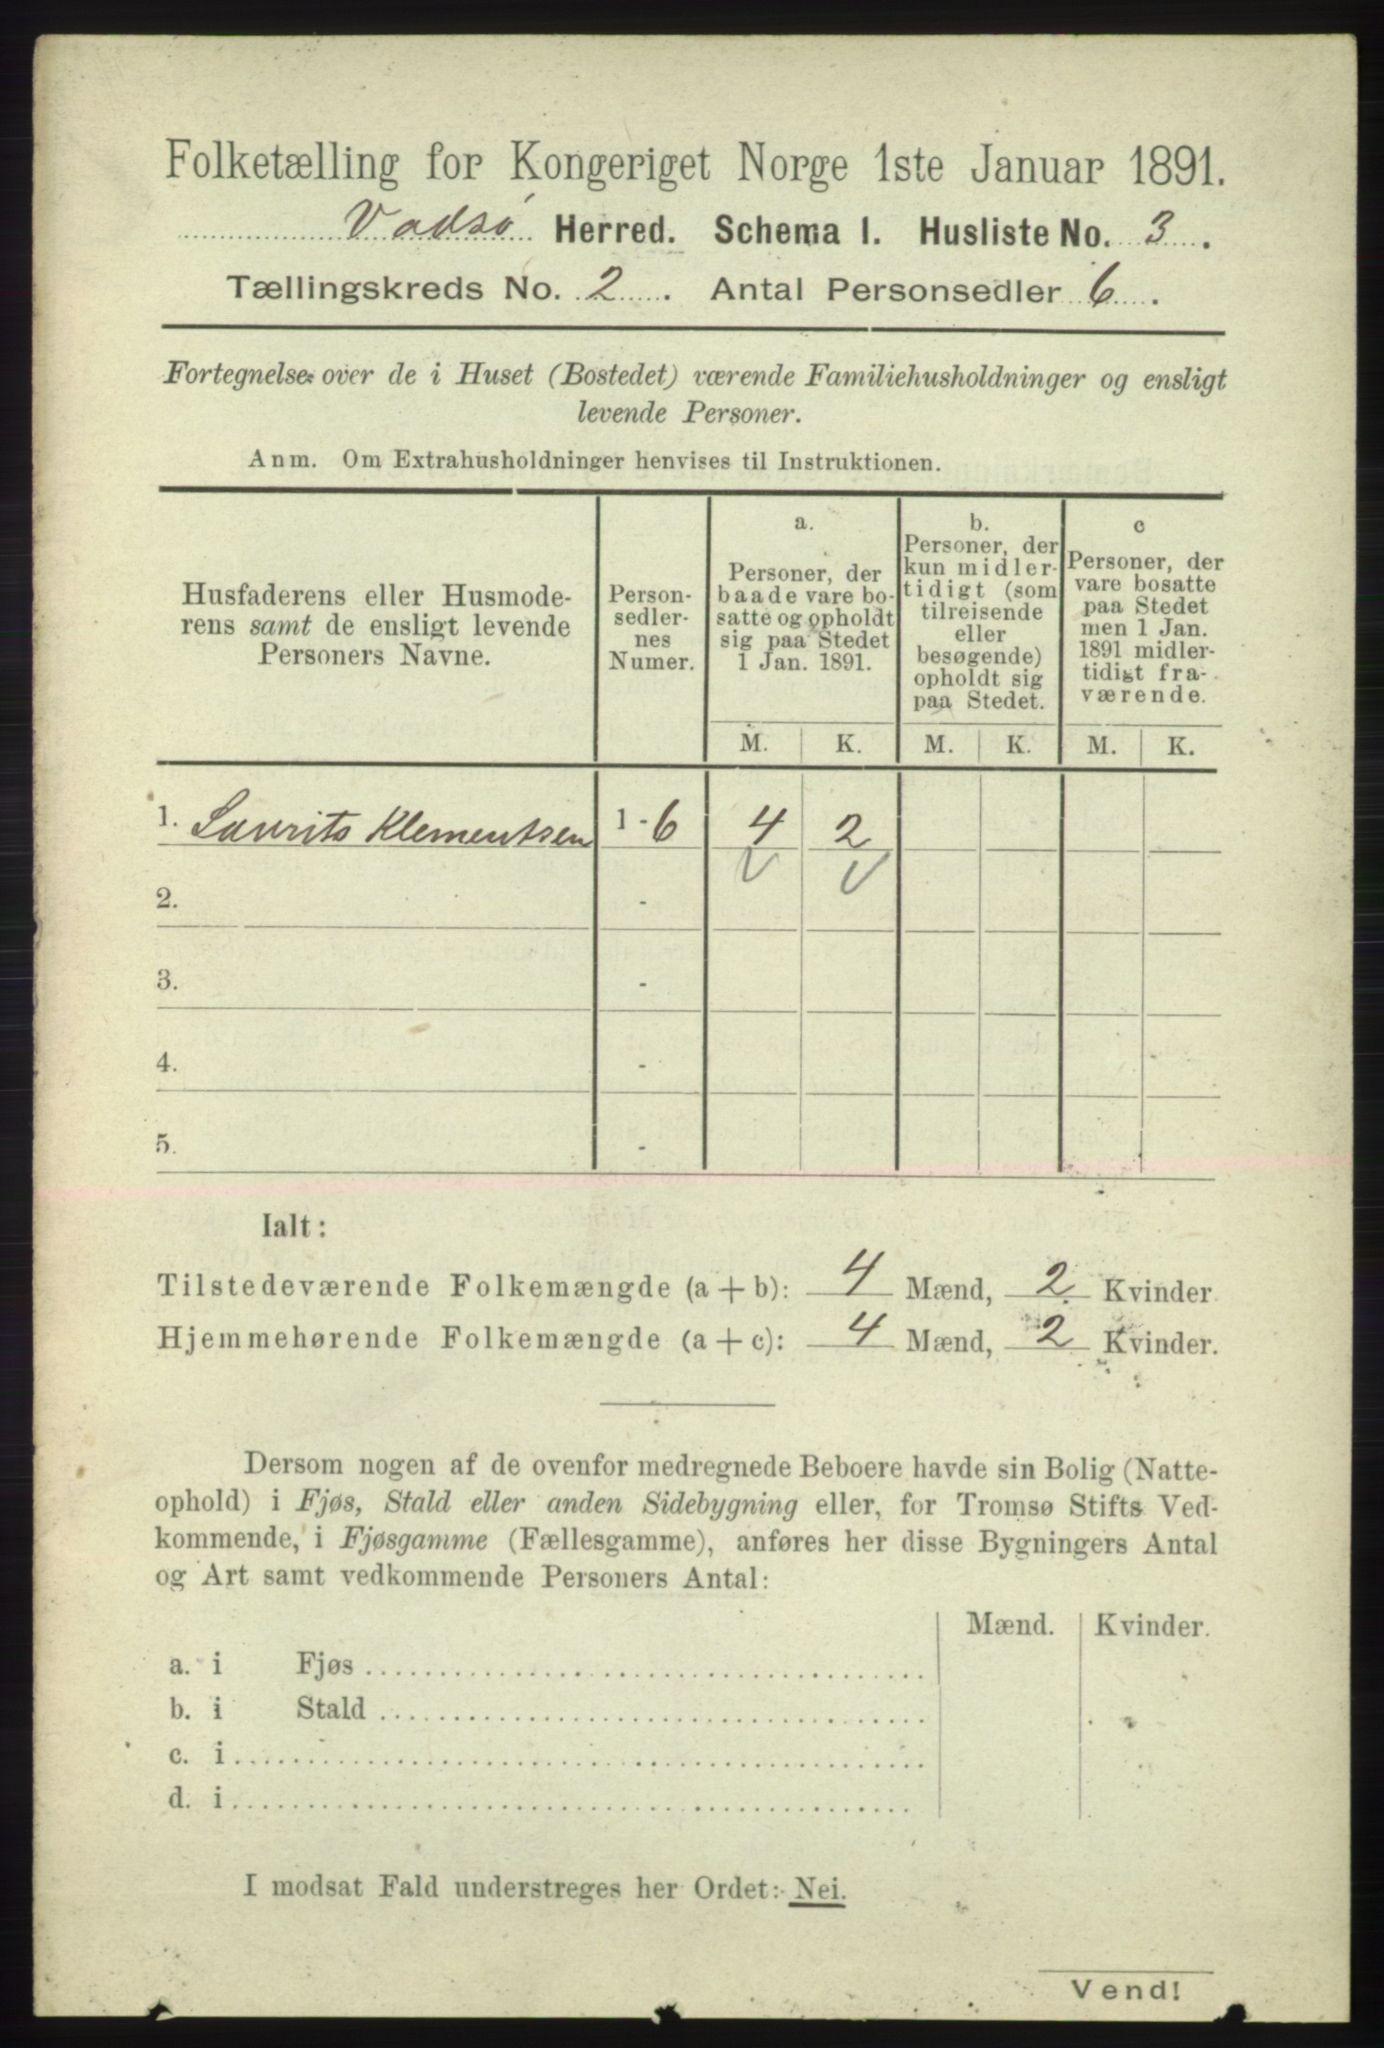 Folketælling for Kongeriget Norge 1ste Januar 1891.
Vadsø Herred. Schema I. Husliste No. 3.
Tællingskreds No. 2. Antal Personsedler 6.
Fortegnelse over de i Huset (Bostedet) værende Familiehusholdninger og ensligt
levende Personer.
Anm. Om Extrahusholdninger henvises til Instruktionen.
Husfaderens eller Husmode-
rens samt de ensligt levende
Personers Navne.
Person-
sedler-
nes
Numer.
a.
Personer, der
baade vare bo-
satte og opholdt
sig paa Stedet
1 Jan. 1891.
b.
Personer, der
kun midler-
tidigt (som
tilreisende
eller
besøgende)
opholdt sig
paa Stedet.
c
Personer, der
vare bosatte
paa Stedet
men 1 Jan.
1891 midler-
tidigt fra-
værende.
M. K. M. K. M. K.
1. Laurits Klementsen 1 - 6 4 2
2. -
3. -
4. -
5. -
Ialt:
Tilstedeværende Folkemængde (a + b): 4 Mænd, 2 Kvinder
Hjemmehørende Folkemængde (a + c): 4 Mænd, 2 Kvinder.
Dersom nogen af de ovenfor medregnede Beboere havde sin Bolig (Natte-
ophold) i Fjøs, Stald eller anden Sidebygning eller, for Tromsø Stifts Ved-
kommende, i Fjøsgamme (Fællesgamme), anføres her disse Bygningers Antal
og Art samt vedkommende Personers Antal:
Mænd. Kvinder.
a. i Fjøs
b. i Stald
c. i
d. i
I modsat Fald understreges her Ordet: Nei.
Vend!